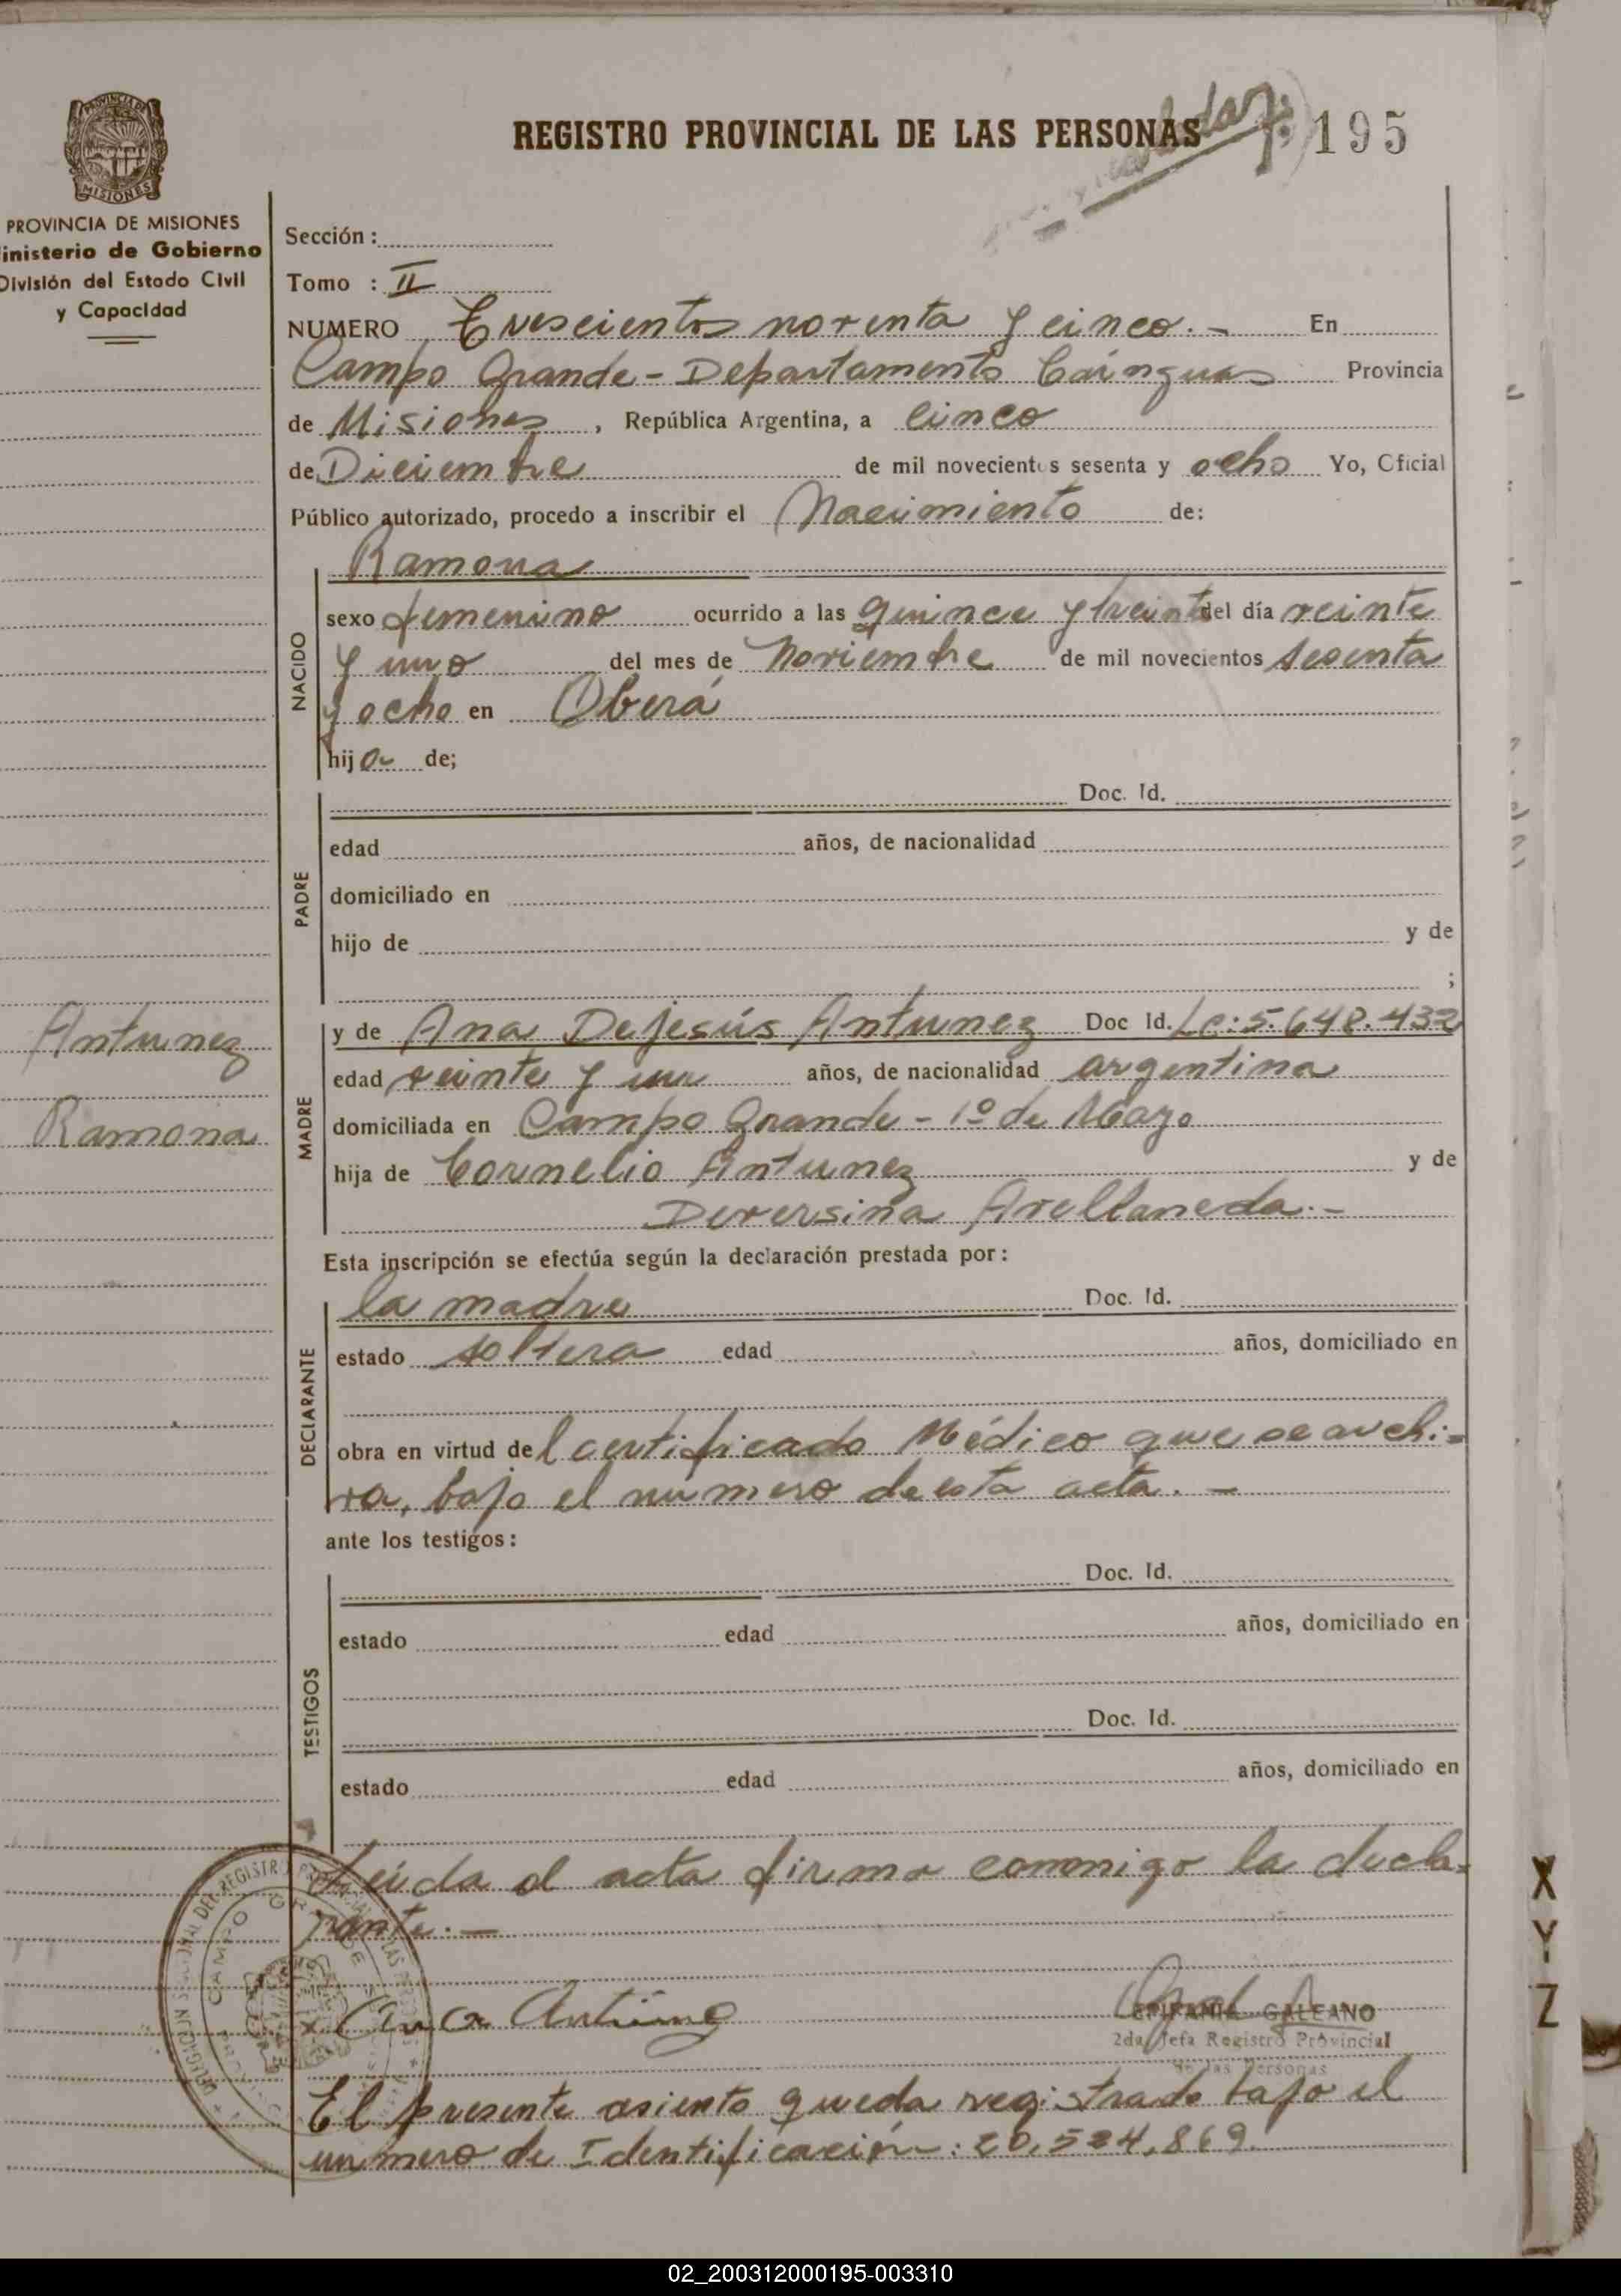 REGISTRO PROVINCIAL DE LAS PERSONAS
195
PROVINCIA DE MISIONES
PROVINCIA DE MISIONES
inisterio de Gobierno
División del Estado Civil
y Capacidad
Sección :
Tomo : II
NUMERO Trescientos noventa y cinco. - En
Campo Grande - Departamento Cainguas Provincia
de Misiones , República Argentina, a cinco
de Diciembre de mil novecientos sesenta y ocho Yo, Oficial
Público autorizado, procedo a inscribir el Nacimiento de:
NACIDO
Ramona
sexo femenino ocurrido a las quince y treinta del día veinte
y uno del mes de Noviembre de mil novecientos sesenta
y ocho en Oberá
hija de;
PADRE
Doc. Id.
edad años, de nacionalidad
domiciliado en
hijo de y de
;
Antunez
Ramona
MADRE
y de Ana Dejesús Antunez Doc Id. Lc: 5.648.432
edad veinte y un años, de nacionalidad argentina
domiciliada en Campo Grande - 1º de Mayo
hija de Cornelio Antunez y de
Deversina Avellaneda. -
Esta inscripción se efectúa según la declaración prestada por :
DECLARANTE
la madre Doc. Id.
estado soltera edad años, domiciliado en
obra en virtud del certificado Médico que se archi-
ra, bajo el número de esta acta. -
ante los testigos :
TESTIGOS
Doc. Id.
estado edad años, domiciliado en
Doc. Id.
estado edad años, domiciliado en
Leida el acta firma conmigo la decla-
rante. -
CAMPO GRANDE
x Ana Antúnez
EPIFANIA GALEANO
2da. Jefa Registro Provincial
de las Personas
El presente asiento queda registrado bajo el
numero de Identificación: 20.524.869.
X
Y
Z
02_200312000195-003310